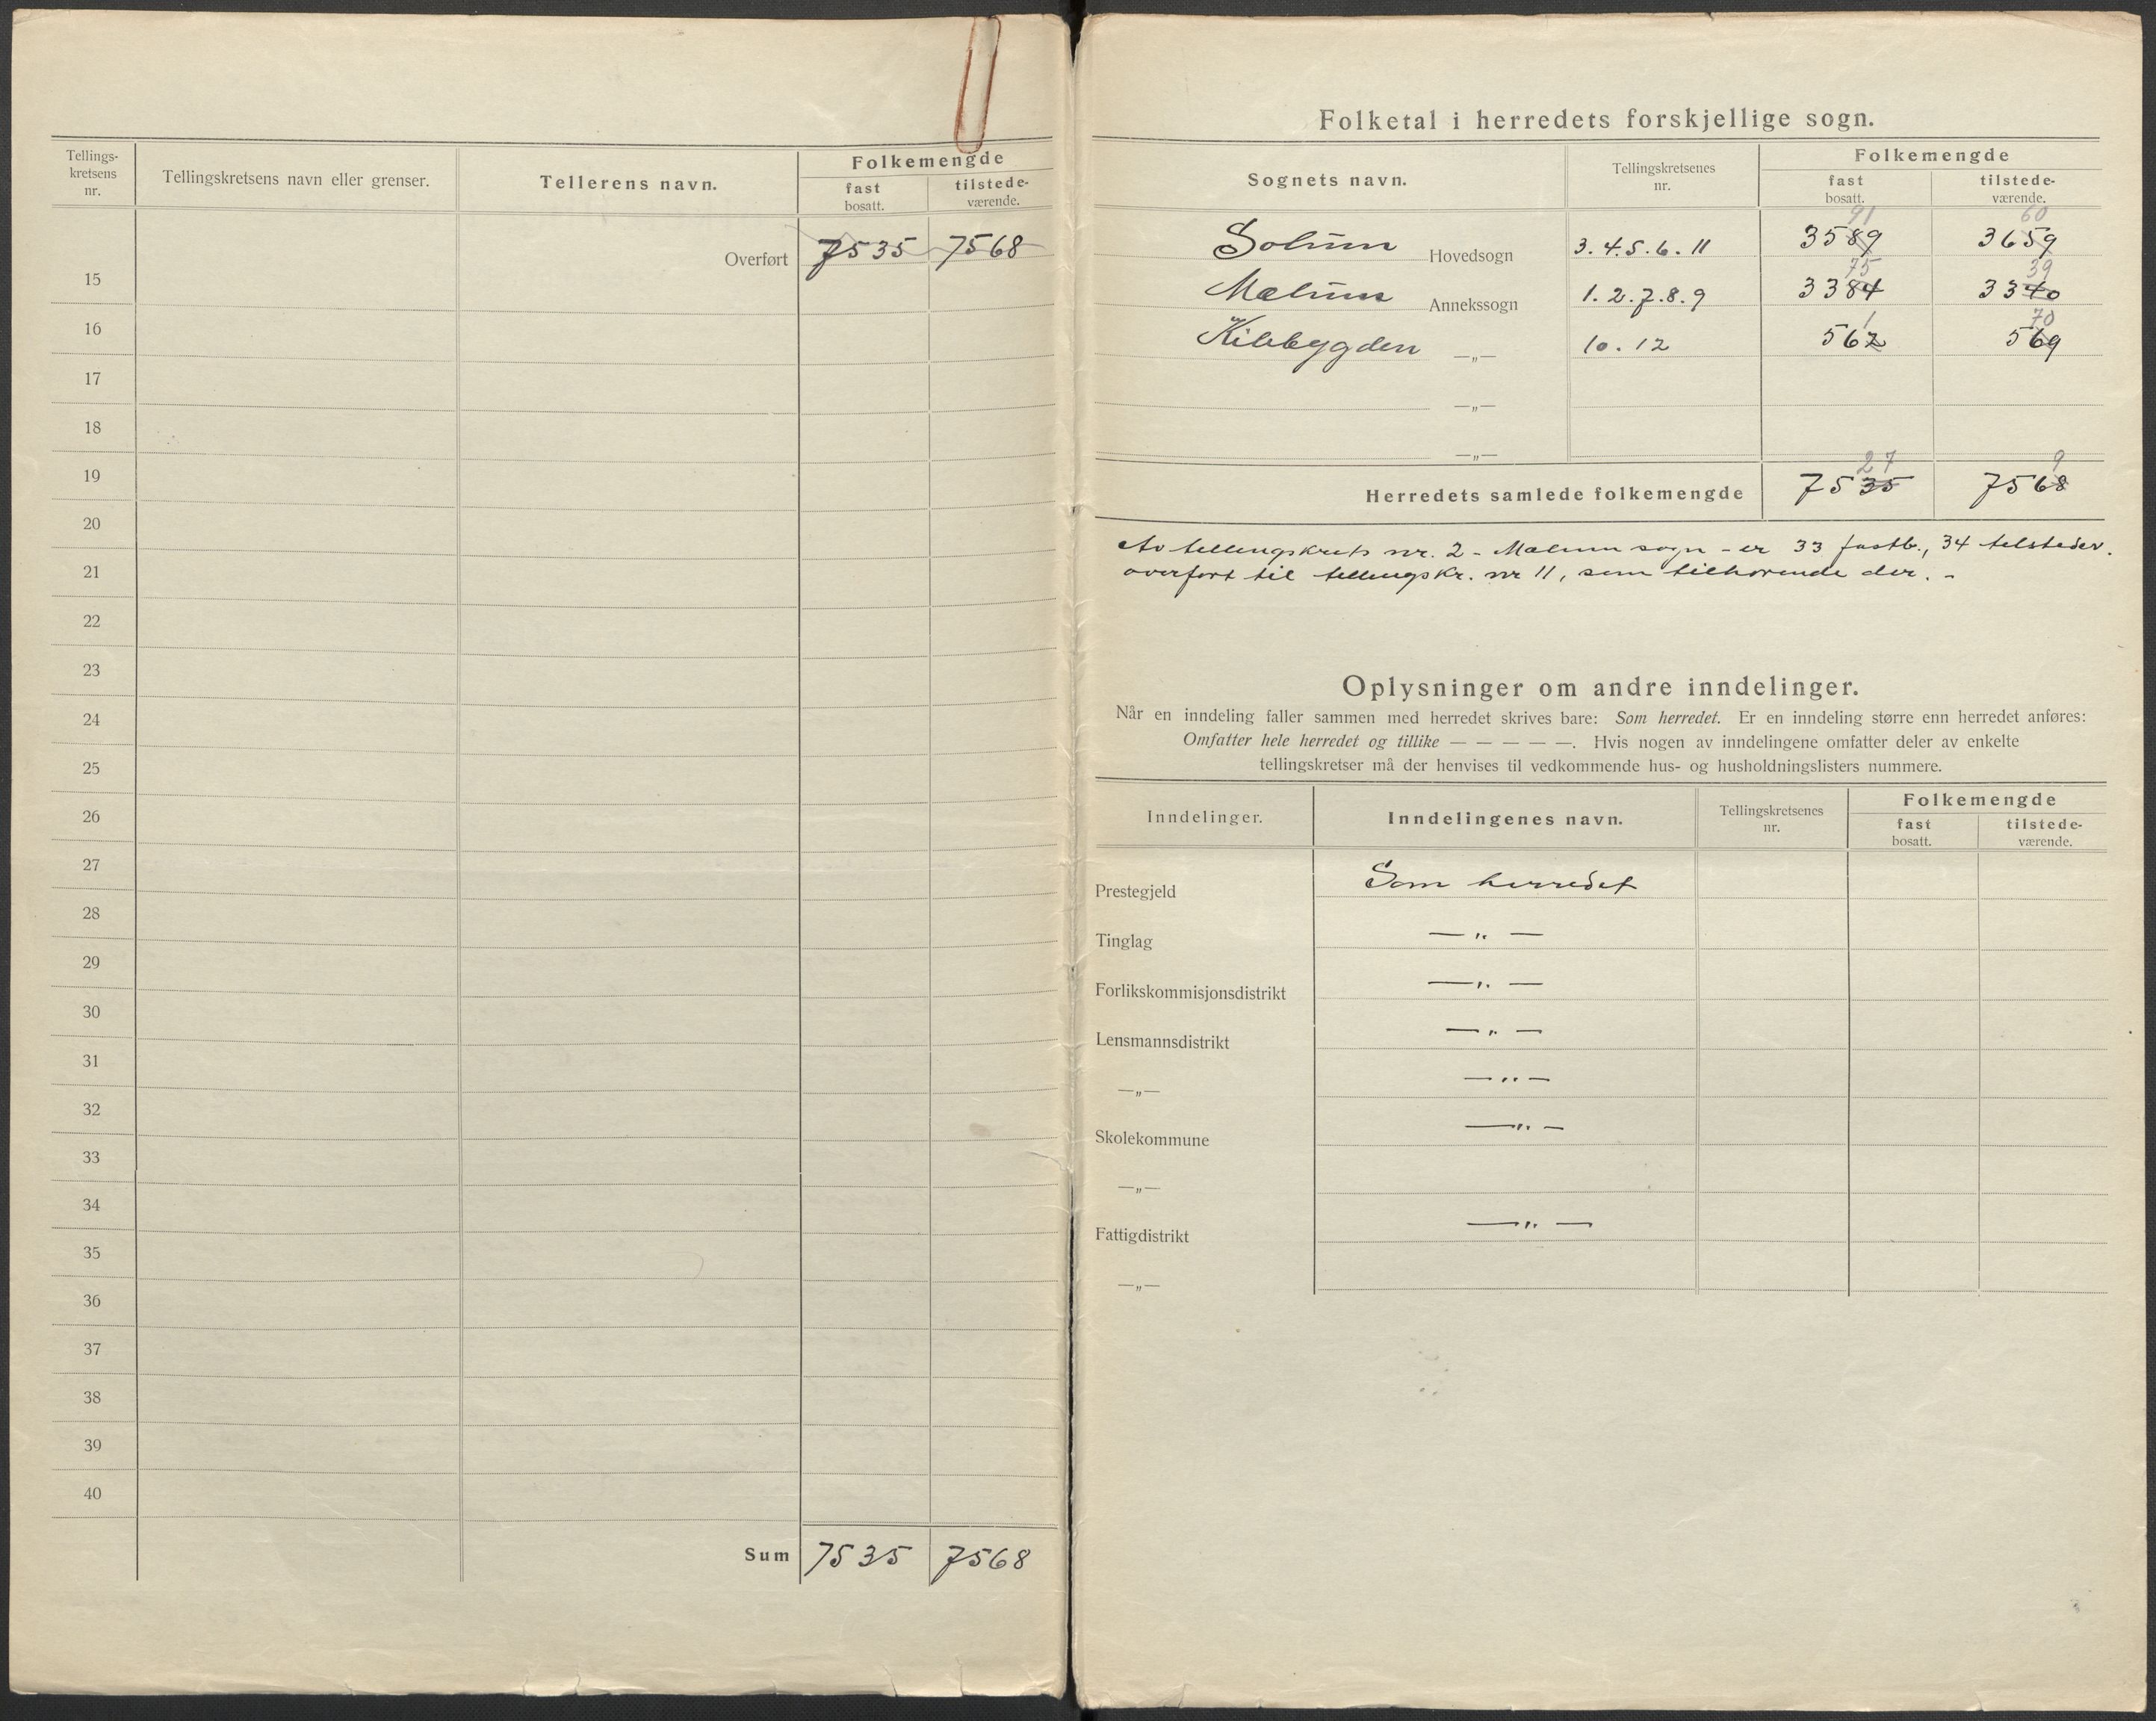 Tellings-
kretsens
nr.
Tellingskretsens navn eller grenser.
Tellerens navn.
Folkemengde
fast
bosatt.
tilstede-
værende.
Overført 7535 7568
15
16
17
18
19
20
21
22
23
24
25
26
27
28
29
30
31
32
33
34
35
36
37
38
39
40
Sum 7535 7568
Folketal i herredets forskjellige sogn.
Sognets navn.
Tellingskretsenes
nr.
Folkemengde
fast
bosatt.
tilstede-
værende.
91 60
Solum Hovedsogn 3. 4. 5. 6. 11 3589 3659
75 39
Melum Annekssogn 1. 2. 7. 8. 9 3384 3340
1 70
Kilebygden —„— 10. 12 562 569
—„—
—„—
27 9
Herredets samlede folkemengde 7535 7568
Av tellingskrets nr. 2 - Melum sogn - er 33 fastb., 34 tilstedev.
overført til tellingskr. nr 11, som tilhørende der. -
Oplysninger om andre inndelinger.
Når en inndeling faller sammen med herredet skrives bare: Som herredet. Er en inndeling større enn herredet anføres:
Omfatter hele herredet og tillike — — — — —. Hvis nogen av inndelingene omfatter deler av enkelte
tellingskretser må der henvises til vedkommende hus- og husholdningslisters nummere.
Inndelinger.
Inndelingenes navn.
Tellingskretsenes
nr.
Folkemengde
fast
bosatt.
tilstede-
værende.
Prestegjeld Som herredet
Tinglag — „ —
Forlikskommisjonsdistrikt — „ —
Lensmannsdistrikt — „ —
—„— — „ —
Skolekommune — „ —
—„—
Fattigdistrikt — „ —
—„—